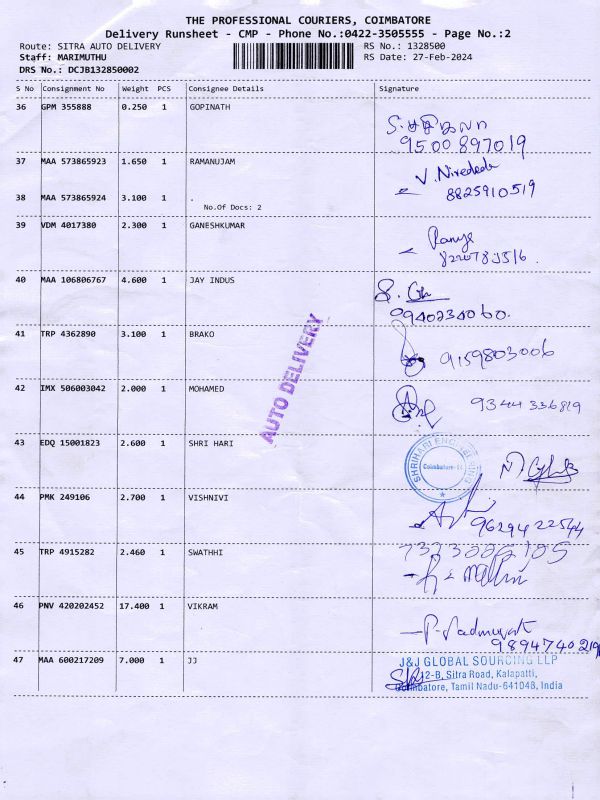 THE PROFESSIONAL COURIERS, COIMBATORE
Delivery Runsheet - CMP - Phone No.:0422-3505555 - Page No.:2
Route: SITRA AUTO DELIVERY RS No.: 1328500
Staff: MARIMUTHU RS Date: 27-Feb-2024
DRS No.: DCJB132850002
S No Consignment No Weight PCS Consignee Details Signature
36 GPM 355888 0.250 1 GOPINATH
9500897019
37 MAA 573865923 1.650 1 RAMANUJAM
V. 8825910519
38 MAA 573865924 3.100 1 .
No.Of Docs: 2
39 VDM 4017380 2.300 1 GANESHKUMAR
Ramya
40 MAA 106806767 4.600 1 JAY INDUS
9940234060.
41 TRP 4362890 3.100 1 BRAKO
9159803006
42 IMX 506003042 2.000 1 MOHAMED
9344336819
AUTO DELIVERY
43 EDQ 15001823 2.600 1 SHRI HARI
SHRIHARI ENGINEERING
Coimbatore
44 PMK 249106 2.700 1 VISHNIVI
9629422544
45 TRP 4915282 2.460 1 SWATHHI
46 PNV 420202452 17.400 1 VIKRAM
9894740219
47 MAA 600217209 7.000 1 JJ
J&J GLOBAL SOURCING LLP
12-B, Sitra Road, Kalapatti,
Coimbatore, Tamil Nadu-641048, India